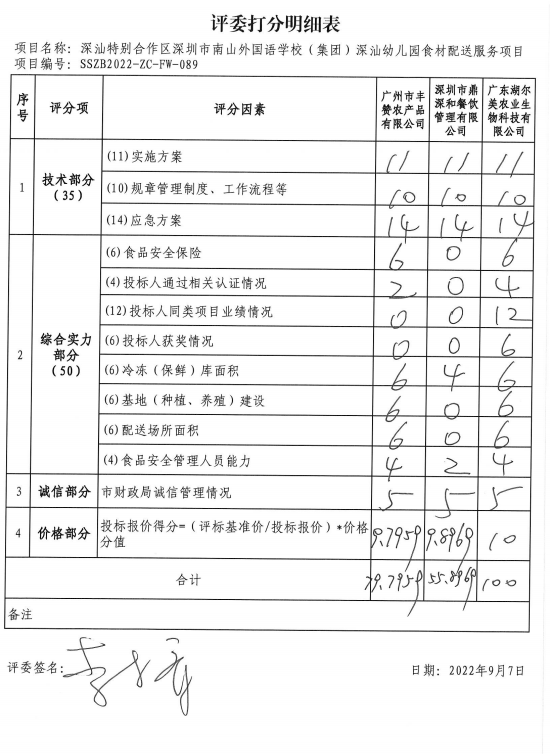 评委打分明细表
项目名称: 深汕特别合作区深圳市南山外国语学校（集团）深汕幼儿园食材配送服务项目
项目编号: SSZB2022-ZC-FW-089
序号 评分项 评分因素 广州市丰赞农产品有限公司 深圳市鼎深和餐饮管理有限公司 广东湖尔美农业生物科技有限公司
1 技术部分（35） (11)实施方案 11 11 11
(10)规章管理制度、工作流程等 10 10 10
(14)应急方案 14 14 14
2 综合实力部分（50） (6)食品安全保险 6 0 6
(4)投标人通过相关认证情况 2 0 4
(12)投标人同类项目业绩情况 0 0 12
(6)投标人获奖情况 0 0 6
(6)冷冻（保鲜）库面积 6 4 6
(6)基地（种植、养殖）建设 6 0 6
(6)配送场所面积 6 0 6
(4)食品安全管理人员能力 4 2 4
3 诚信部分 市财政局诚信管理情况 5 5 5
4 价格部分 投标报价得分=（评标基准价/投标报价）*价格分值 9.7959 9.8969 10
合计 79.7959 55.8969 100
备注
评委签名:
日期: 2022年9月7日